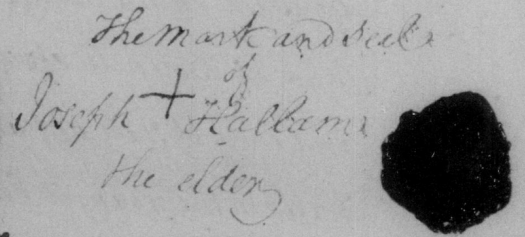 The mark and seal
of
Joseph + Hallam
the elder